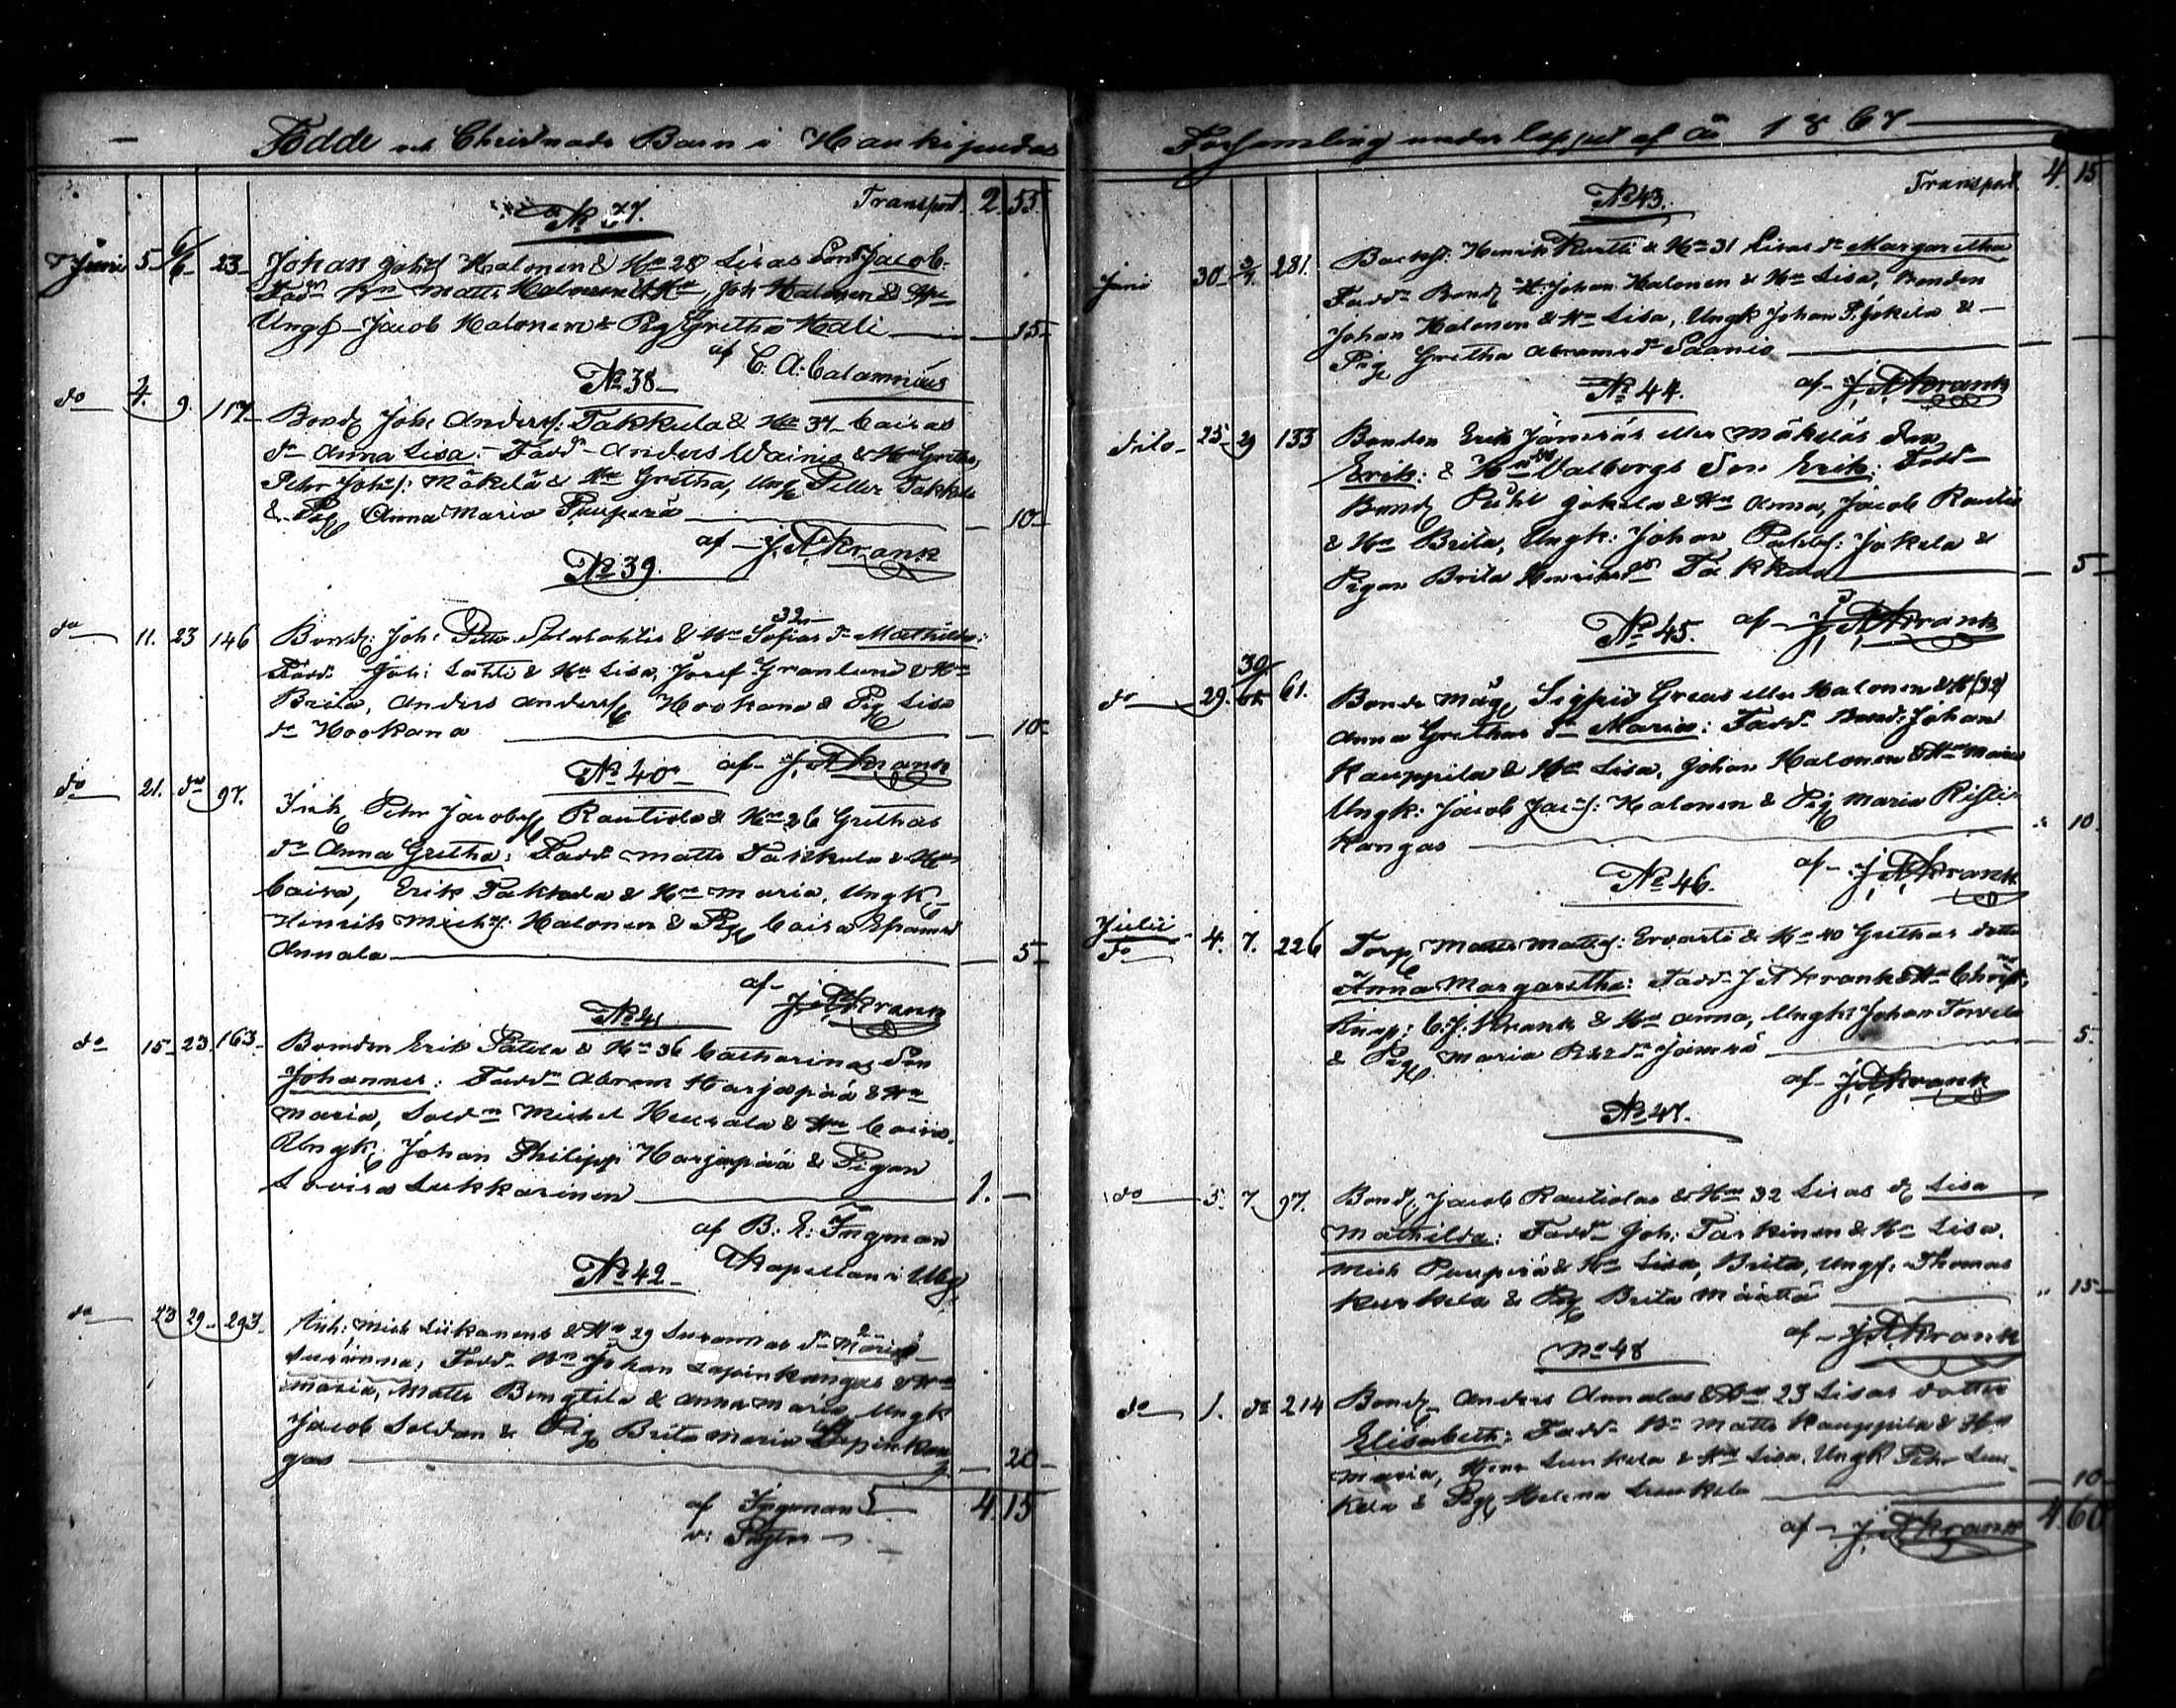 Födde och Christnade Barn i Haukipudas
Transport 2. 55
No 37.
Juni 5 6/6 23 Johan Johs Halonen & Hu 28 Lisas Son Jacob.
Fadd. Bn Matts Halonen & Hu, Joh Halonen &
Ungk Jacob Halonen & Pig Gretha Hali — 15
af C. A. Calamnius
No 38
do 4. 9. 117 Bond Joh. Anders: Takkula & Hu 37 Caisas
dr Anna Lisa: Fadd Anders Wainio & Hu Gretha,
Pehr Johs: Mäkelä & Hu Gretha, Ung Petter Takkula
& Pig Anna Maria Puuperä — 10
af J. A. Krank
No 39.
do 11. 23 146 Bond: Joh: Petter & Hu Sofias 32 dr Mathilda:
Fadd Joh: Lahti & Hu Lisa, Josef Granlund & Hu
Brita, Anders Anders Hookana & Pig Lisa
dr Hookana — 10
af J. A. Krank
No 40
do 21. do 97. Inh Pehr Jacobs Rautiola & Hu 26 Grethas
dr Anna Gretha: Fadd Matts Takkula & Hu
Caisa, Erik Takkula & Hu Maria, Ungk
Henrik Michs: Halonen & Pig Caisa
Annala — 5
af J. A. Krank
No 41
do 15 23 163 Bonden Erik Patela & Hu 36 Catharinas Son
Johannes: Fadd Abram Harjapää & Hu
Maria, Sold Michel Heusala & Hu Caisa,
Ungk. Johan Philipp Harjapää & Pigan
Lovisa Lukkarinen — 1. —
af B. E. Ingman
Kapellan i Uleg
No 42
do 23 29 293 Inh: Mich Liikanens & Hu 29 Susannas dr Maria
Susanna: Fadd Bn Johan Lapinkangas & Hu
Maria, Matts Bengtila & Anna Maria, Ungk
Jacob Soldan & Pig Brita Maria Lapinkan
gas — 20
af Ingman 4. 15
v: Pastor
Församling under loppet af År 1867
Transport 4. 15
No 43.
Juni 30 2/7. 281. Backst: Henrik & Hu 31 Lisas dr Margaretha
Fadd Bond H: Johan Halonen & Hu Lisa, Bonden
Johan Halonen & Hu Lisa, Ungk Johan P. Jokela &
Pig Gretha Abramsdr Saanio —
af J. A. Krank
No 44.
dito 25 29 133 Bonden Erik Jämsäs eller Mäkeläs Son
Erik: & Hu Valborgs Son Erik: Fadd
Bond Jokela & Hu Anna, Jacob Rautio
& Hu Brita, Ungk: Johan Jokela &
Pigan Brita Henriksdr Takkula — 5
af J. A. Krank
No 45.
do 29. 30/6 61. Bonde Måg Sigfrid Greus eller Halonen & H (32)
Anna Grethas dr Maria: Fadd Bond: Johan
Kauppila & Hu Lisa, Johan Halonen & Hu Maria
Ungk: Jacob Jacs: Halonen & Pig Maria Risti
kangas — 10
af J. A. Krank
No 46.
Julii
do 4. 7. 226 Torp Matts Matts: Ervasti & Hu 40 Grethas dotter
Anna Margaretha: Fadd J A Krank & Hu Christ,
Knap: C. J. Krank & Hu Anna, Ungk: Johan Torvela
& Pig Maria dr Jämsä — 5
af J. A. Krank
No 47.
do 5. 7. 97. Bond Jacob Rautiolas & Hu 32 Lisas d Lisa
Mathilda: Fadd Joh: Tarkinen & Hu Lisa,
Mich Puuperä & Hu Lisa, Brita, Ungk: Thomas
Kurkela & Pig Brita Määttä — 15
af J. A. Krank
No 48
do 1. do 214 Bond Anders Annalas & Hu 23 Lisas dotter
Elisabeth: Fadd Bn Matts Kauppila & Hu
Maria, Luukela & Hu Lisa, Ungk Pehr Luu-
kela & Pig Helena Luukela — 10
af J. A. Krank 4. 60